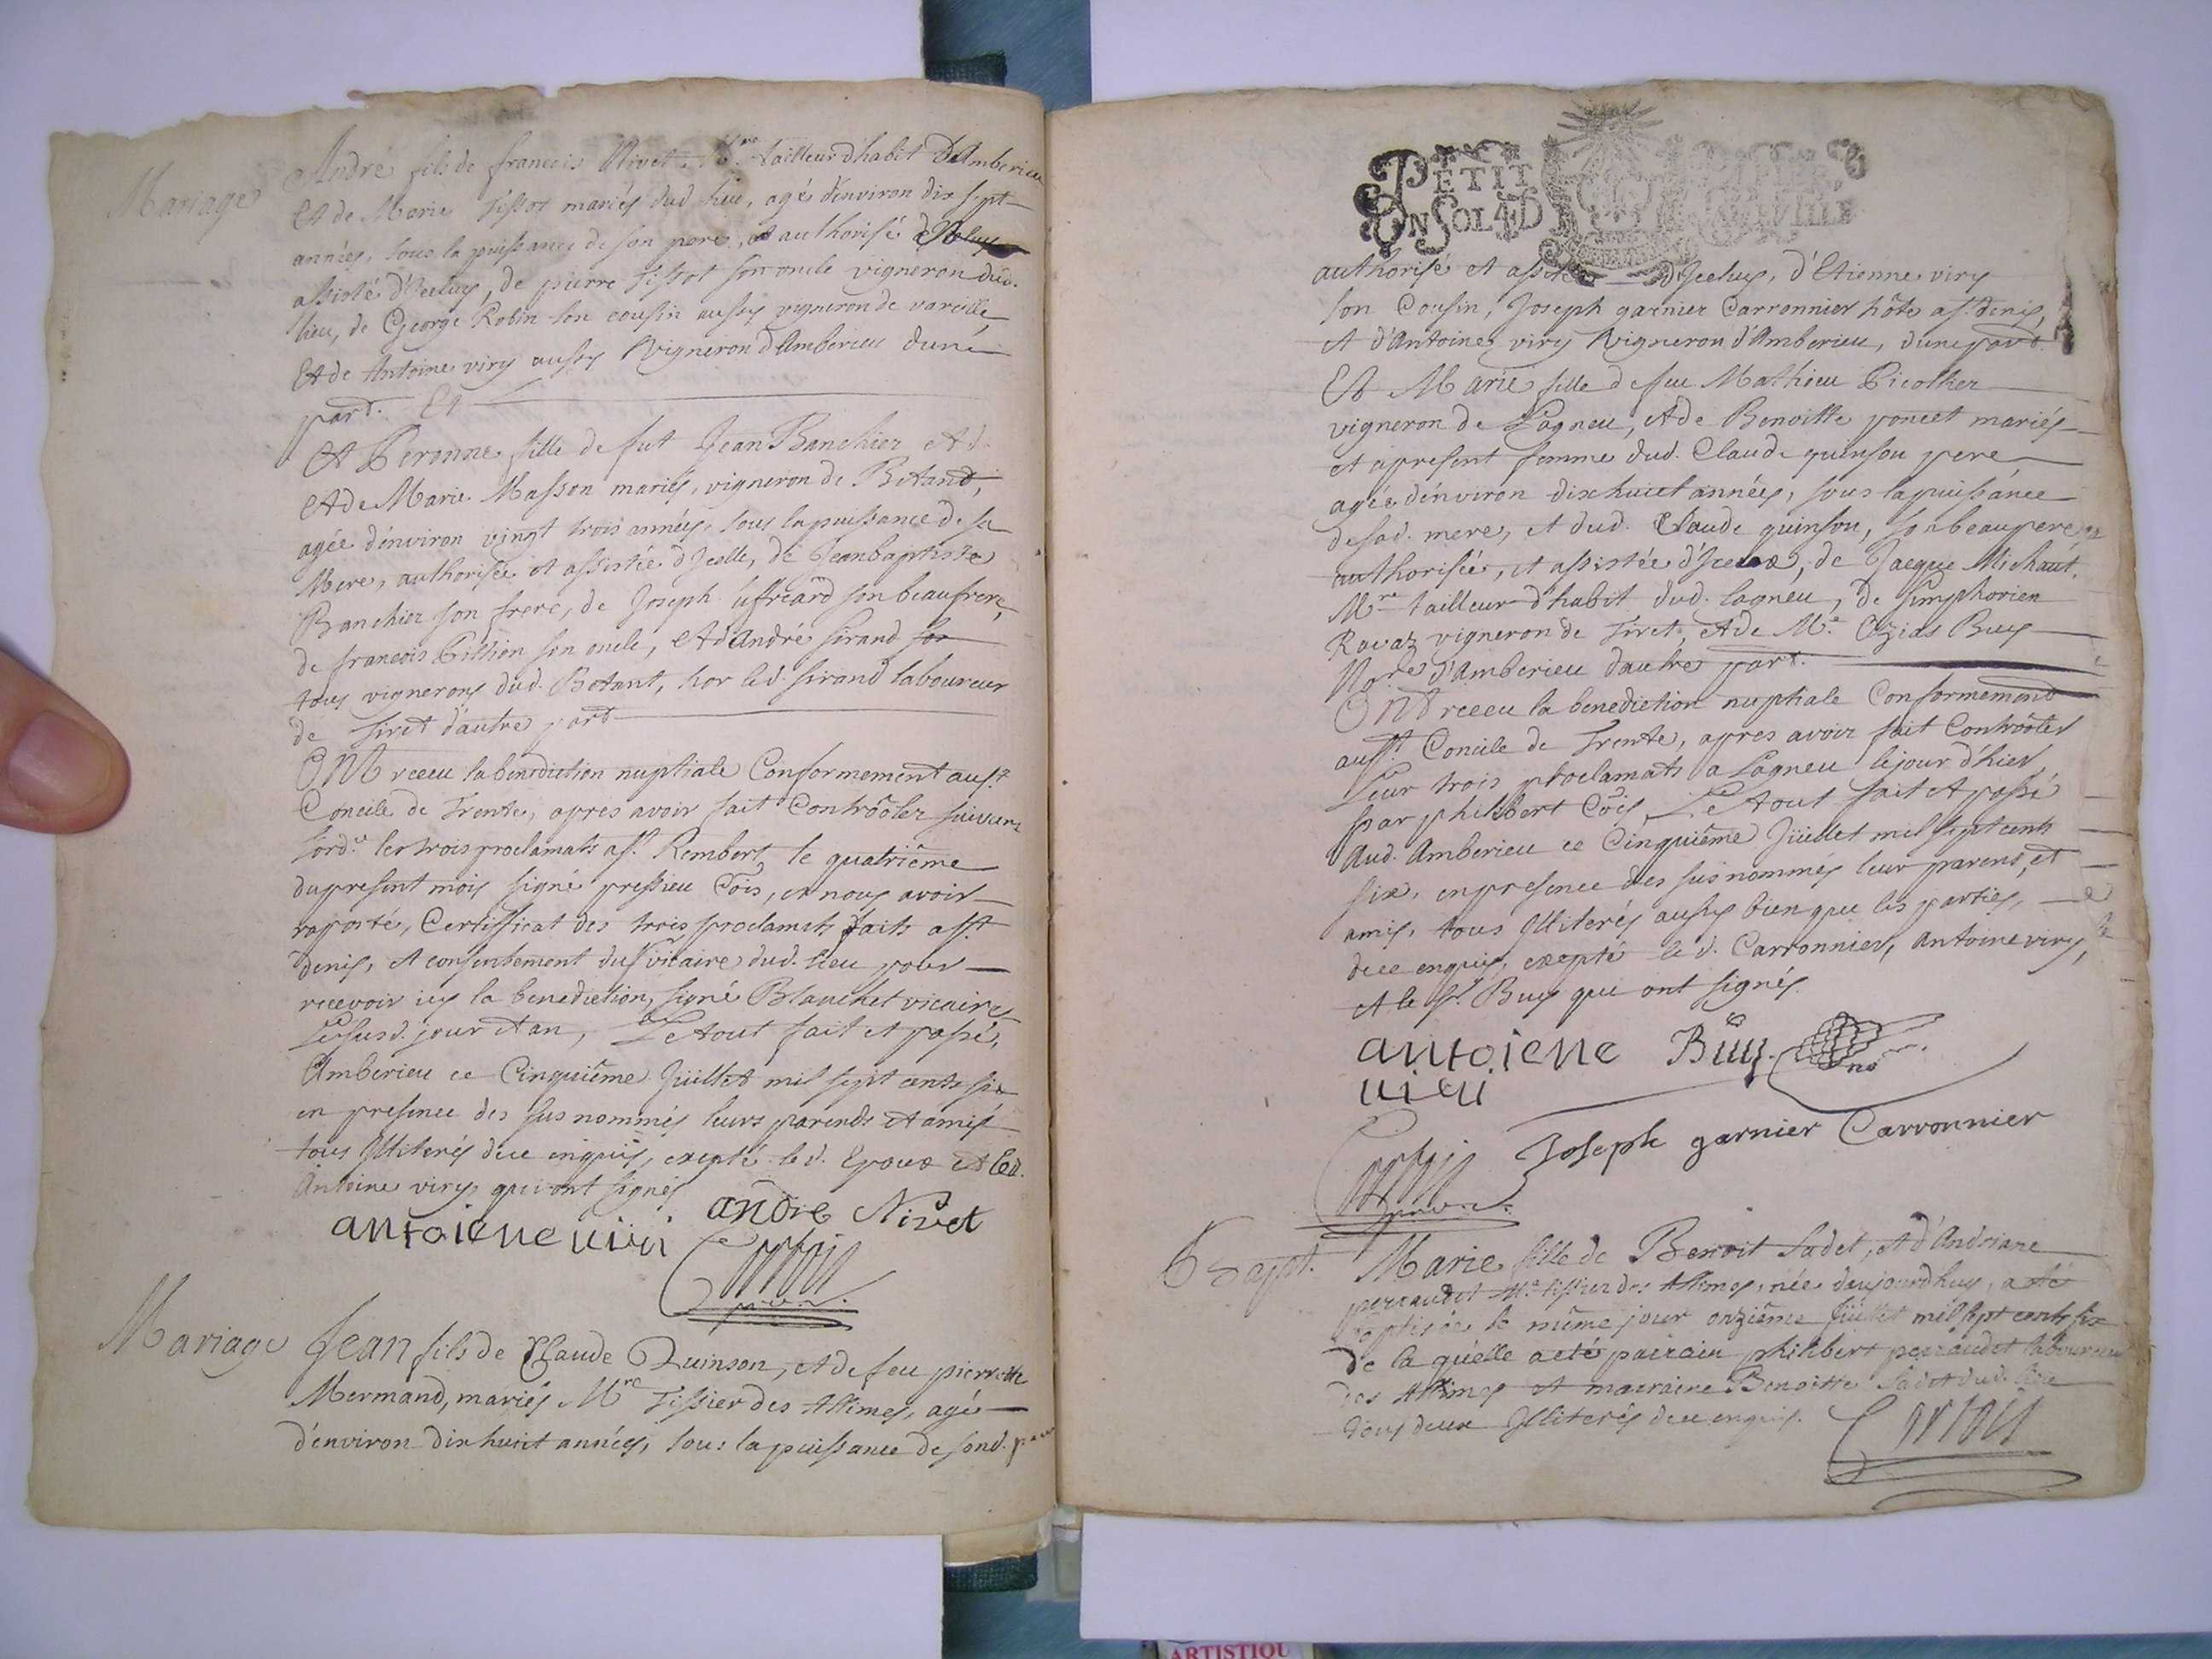 Mariage
André fils de francois Nivet Mre tailleur dhabit d'Amberieu
Et de Marie Tissot mariés dud. lieu, agé d'environ dix sept
années, sous la puissance de son pere, et authorisé
assisté d'Iceluy, de pierre Tissot son oncle vigneron dud.
lieu, de George Robin son cousin aussy vigneron de vareille
Et de Antoine viry aussy vigneron d'Amberieu dune
part. Et
Et Peronne fille de fut Jean Banchier et d.
Et de Marie Masson mariés, vigneron de Botant,
agée d'environ vingt trois années, sous la puissance de sa
Mere, authorisée et assistée d'Icelle, de Jean baptiste
Banchier son frere, de Joseph son beaufrere,
de francois Billion son oncle, et d'André sirand
tous vignerons dud. Botant, hor led. sirand laboureur
de Tiret d'autre part
ONt receu la benediction nuptiale Conformement au st.
Concile de Trente, apres avoir fait Contrôoler suivant
lord.e les trois proclamats a st. Rembert, le quatriême
du present mois signé pressieu Cõis, et nous avoir
raporté, Certifficat des trois proclamats faits a st.
denis, et consentement du sr vicaire dud. lieu pour
recevoir icy la benediction, signé Blanchet vicaire
Le susd. jour et an, Le tout fait et passé,
Amberieu ce Cinquiême Juillet mil sept cents six
en presence des sus nommés leurs parends et amis
tous Illiterés de ce enquis, exepté led. Epoux et led.
Antoine viry, qui ont signés
antoiene viri andre Nivet
Mariage
Jean fils de Claude Quinson, et de feu pierrette
Mermand, mariés Mre Tissier des Allimes, agé
d'environ dix huict années, sous la puissance de sond. pere
PETIT PAPIER
EN SOL 4 D
authorisé et assisté d'Iceluy, d'Etienne viry
son Cousin, Joseph garnier Carronnier hôte a st. denis,
et d'Antoine viry vigneron d'Amberieu, dune part
Et Marie fille de feu Mathieu Picollier
vigneron de Lagneu, et de Benoitte poncet mariés
et apresent femme dud. Claude quinson pere
agée d'environ dix huict années, sous la puissance
de sad. mere, et dud. Claude quinson, son beaupere
authorisée, et assistée d'Iceux, de Jacque Michaut,
Mre tailleur d'habit dud. lagneu, de simphorien
Ravaz vigneron de Tiret, et de Me. Ozias Buy
Nore d'Amberieu d'autre part.
ONt receu la benediction nuptiale Conformement
au st. Concile de Trente, apres avoir fait Contrôoler
Leur trois proclamats a Lagneu le jour d'hier
par philibert Cõis, Le tout fait et passé
Aud. Amberieu ce Cinquiême Juillet mil sept cents
six, en presence des susnommés leur parens, et
amis, tous Illiterés aussy bien que les parties,
de ce enquis, exepté led. Carronnier, Antoine viry,
et le sr. Buy qui ont signés.
antoiene Buy
viri
Joseph garnier Carronnier
6 Bapt.
Marie fille de Benoit Sadet, et d'Andriane
perraudet Me tissier des Allimes, née daujourdhuy, a été
baptisée le même jour onziême Juillet mil sept cents six
de la quelle a eté parrain philibert perraudet laboureur
des Allimes et marraine Benoitte Sadet dud. lieu
tous deux Illiterés de ce enquis.